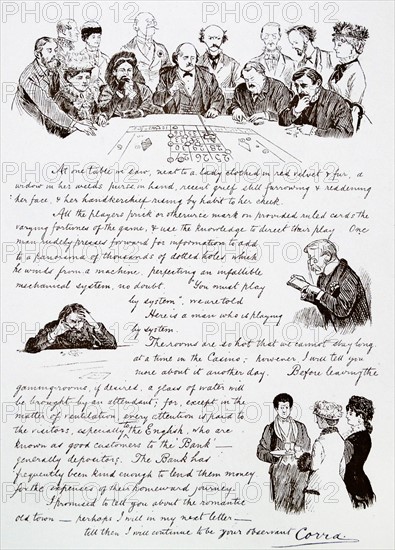 At one table in saw, next to a lady clothed in red velvet & fur, a
widow in her weeds purse in hand, recent grief still furrowing & reddening
her face, & her handkerchief rising by habit to her cheek.
All the players prick or otherwise mark on provided ruled cards the
varying fortunes of the game, & use the knowledge to direct their play. One
man rudely presses forward for information to add
to a panorama of thousands of dotted holes, which
he winds from a machine, perfecting an infallible
mechanical system, no doubt. "You must play
by system", we are told
Here is a man who is playing
by system.
The rooms are so hot that we cannot stay long
at a time in the Casino; however I will tell you
more about it another day. Before leaving the
gaming rooms, if desired, a glass of water will
be brought by an attendant; for, except in the
matter of ventilation, every attention is paid to
the visitors, especially to the English, who are
known as good customers to the 'Bank' —
generally depositors. The Bank has
frequently been kind enough to lend them money
for the expenses of their homeward journey.
I promised to tell you about the romantic
old town — perhaps I will in my next letter —
till then I will continue to be your observant Corra.